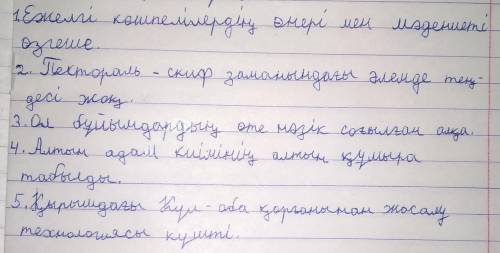 1. Ежелгі көшпелілердің өнері мен мәдениеті
өзгеше.
2. Пектораль - скиф заманындағы әлемде тең-
десі жоқ.
3. Ол бұйымдардың өте нәзік соғылған алқа.
4. Алтын адам киімінің алтын құмыра
табылды.
5. Қырышдағы Күл - оба қорғанынан жасалу
технологиясы күшті.